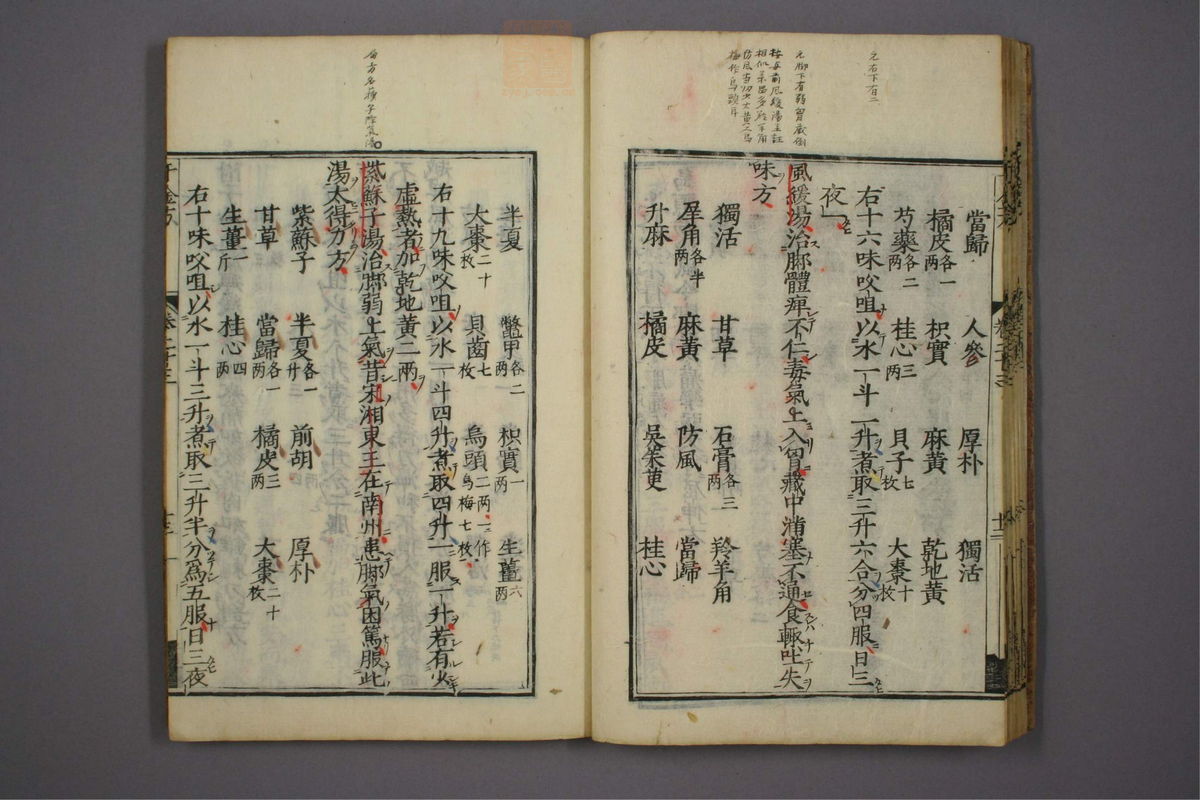 當歸 人參 厚朴 獨活
橘皮各一两 枳實 麻黃 乾地黃
芍藥各二两 桂心三两 貝子七枚 大棗十枚
右十六味㕮咀以水一斗一升煮取三升六合分四服日三
夜一
風緩湯治脚體痺不仁毒氣上入胷藏中滿塞不通食輙吐失
味方
獨活 甘草 石膏各三两 羚羊角
犀角各半两 麻黃 防風 當歸
升麻 橘皮 吳茱萸 桂心
半夏 鼈甲各二两 枳實一两 生薑六两
大棗二十枚 貝齒七枚 烏頭二两一作烏梅七枚
右十九味㕮咀以水一斗四升煮取四升一服一升若有少
虛熱者加乾地黃二两
紫蘇子湯治脚弱上氣昔宋湘東王在南州患脚氣困篤服此
湯大得力方
紫蘇子 半夏各一升 前胡 厚朴
甘草 當歸各一两 橘皮三两 大棗二十枚
生薑一斤 桂心四两
右十味㕮咀以水一斗三升煮取三升半分爲五服日三夜